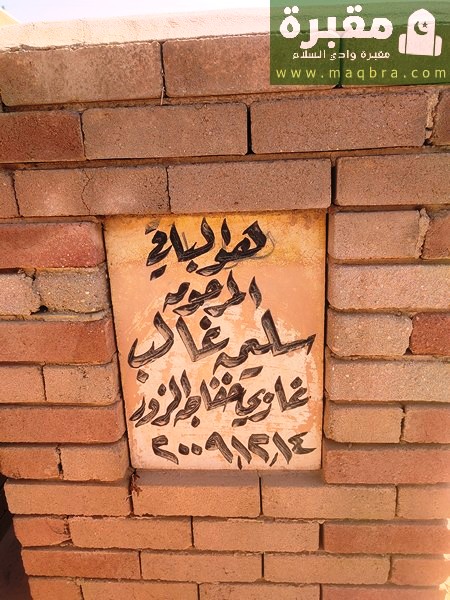 مقبرة
مقبرة وادي السلام
www.maqbra.com
هو الباقي
المرحومه
سليمه غالب
غازي خفاجه الزوز
٢٠٠٩/٢/١٤